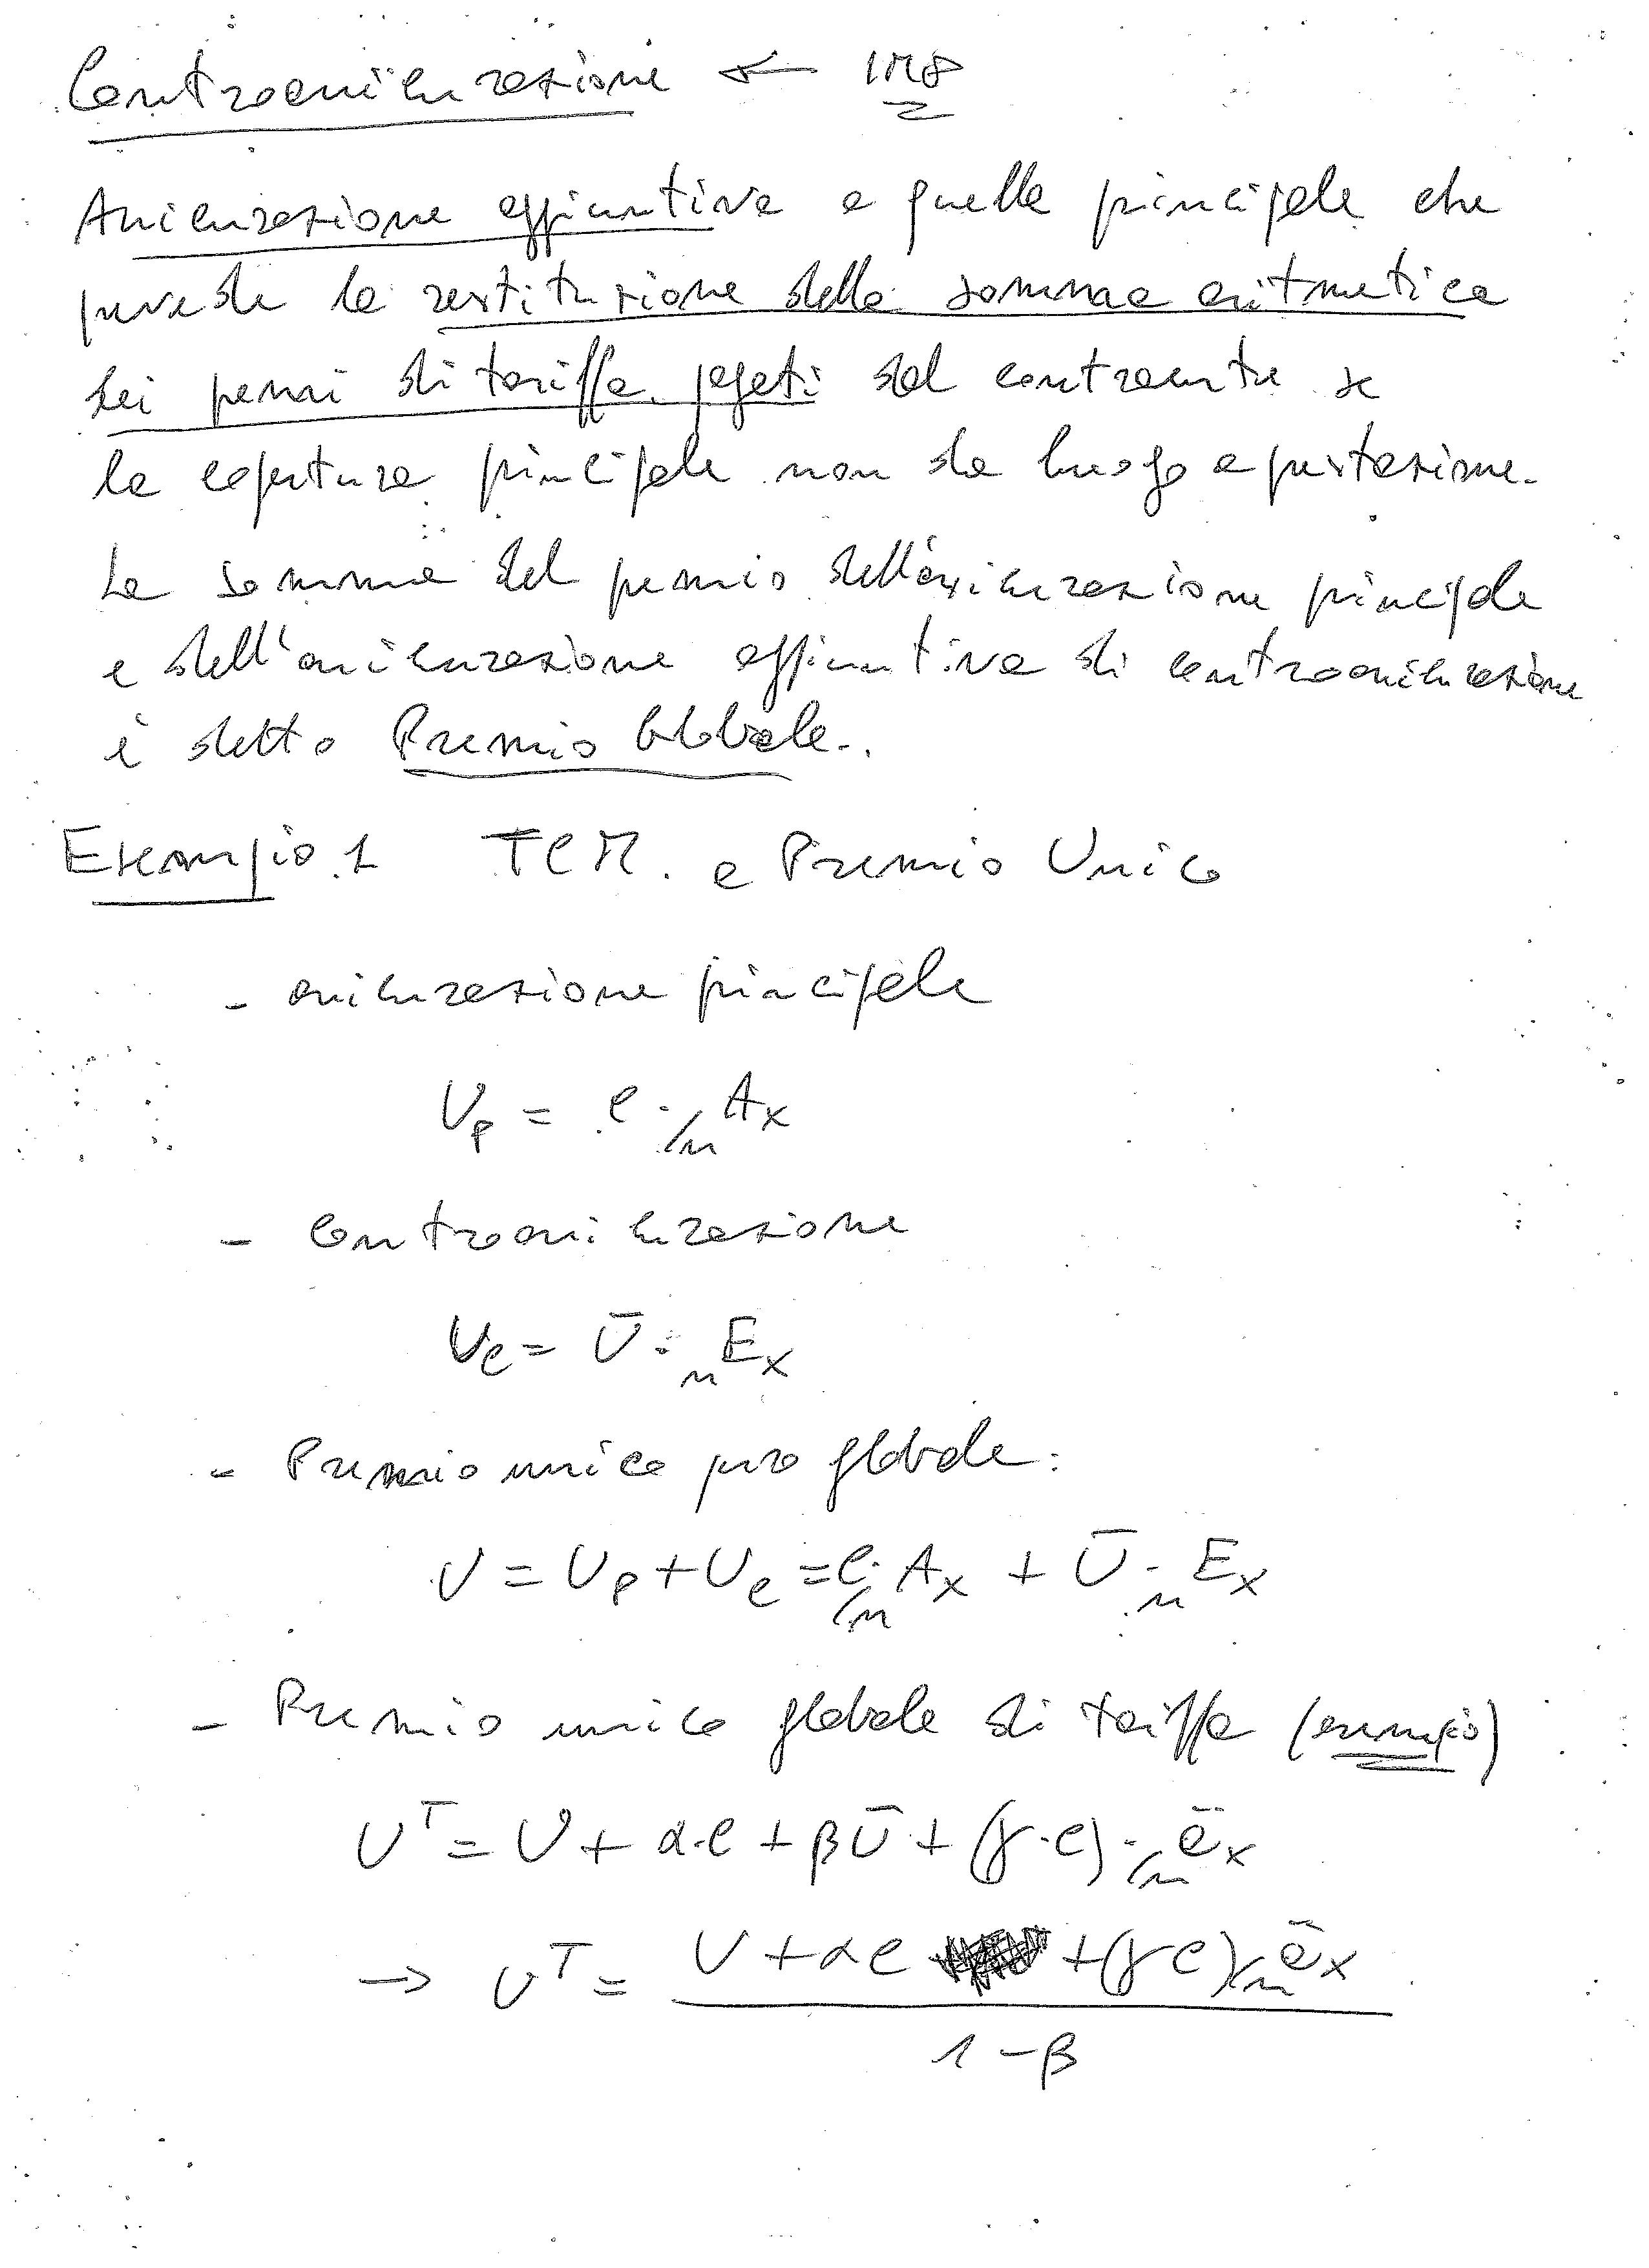 Controassicurazione ← IMP
Assicurazione aggiuntiva a quella principale che
prevede la restituzione della somma aritmetica
dei premi di tariffa pagati dal contraente se
la copertura principale non da luogo a prestazione.
La somma del premio dell'assicurazione principale
e dell'assicurazione aggiuntiva di controassicurazione
è detto Premio Globale.
Esempio 1 TCM a Premio Unico
- assicurazione principale
U_P = C · /n A_x
- Controassicurazione
U_C = Ū · n E_x
- Premio unico puro globale:
U = U_P + U_C = C · /n A_x + Ū · n E_x
- Premio unico globale di tariffa (esempio)
U^T = U + α·C + βŪ + (γ·C) · /n ä_x
→ U^T = U + αC + (γC) /n ä_x
1 - β